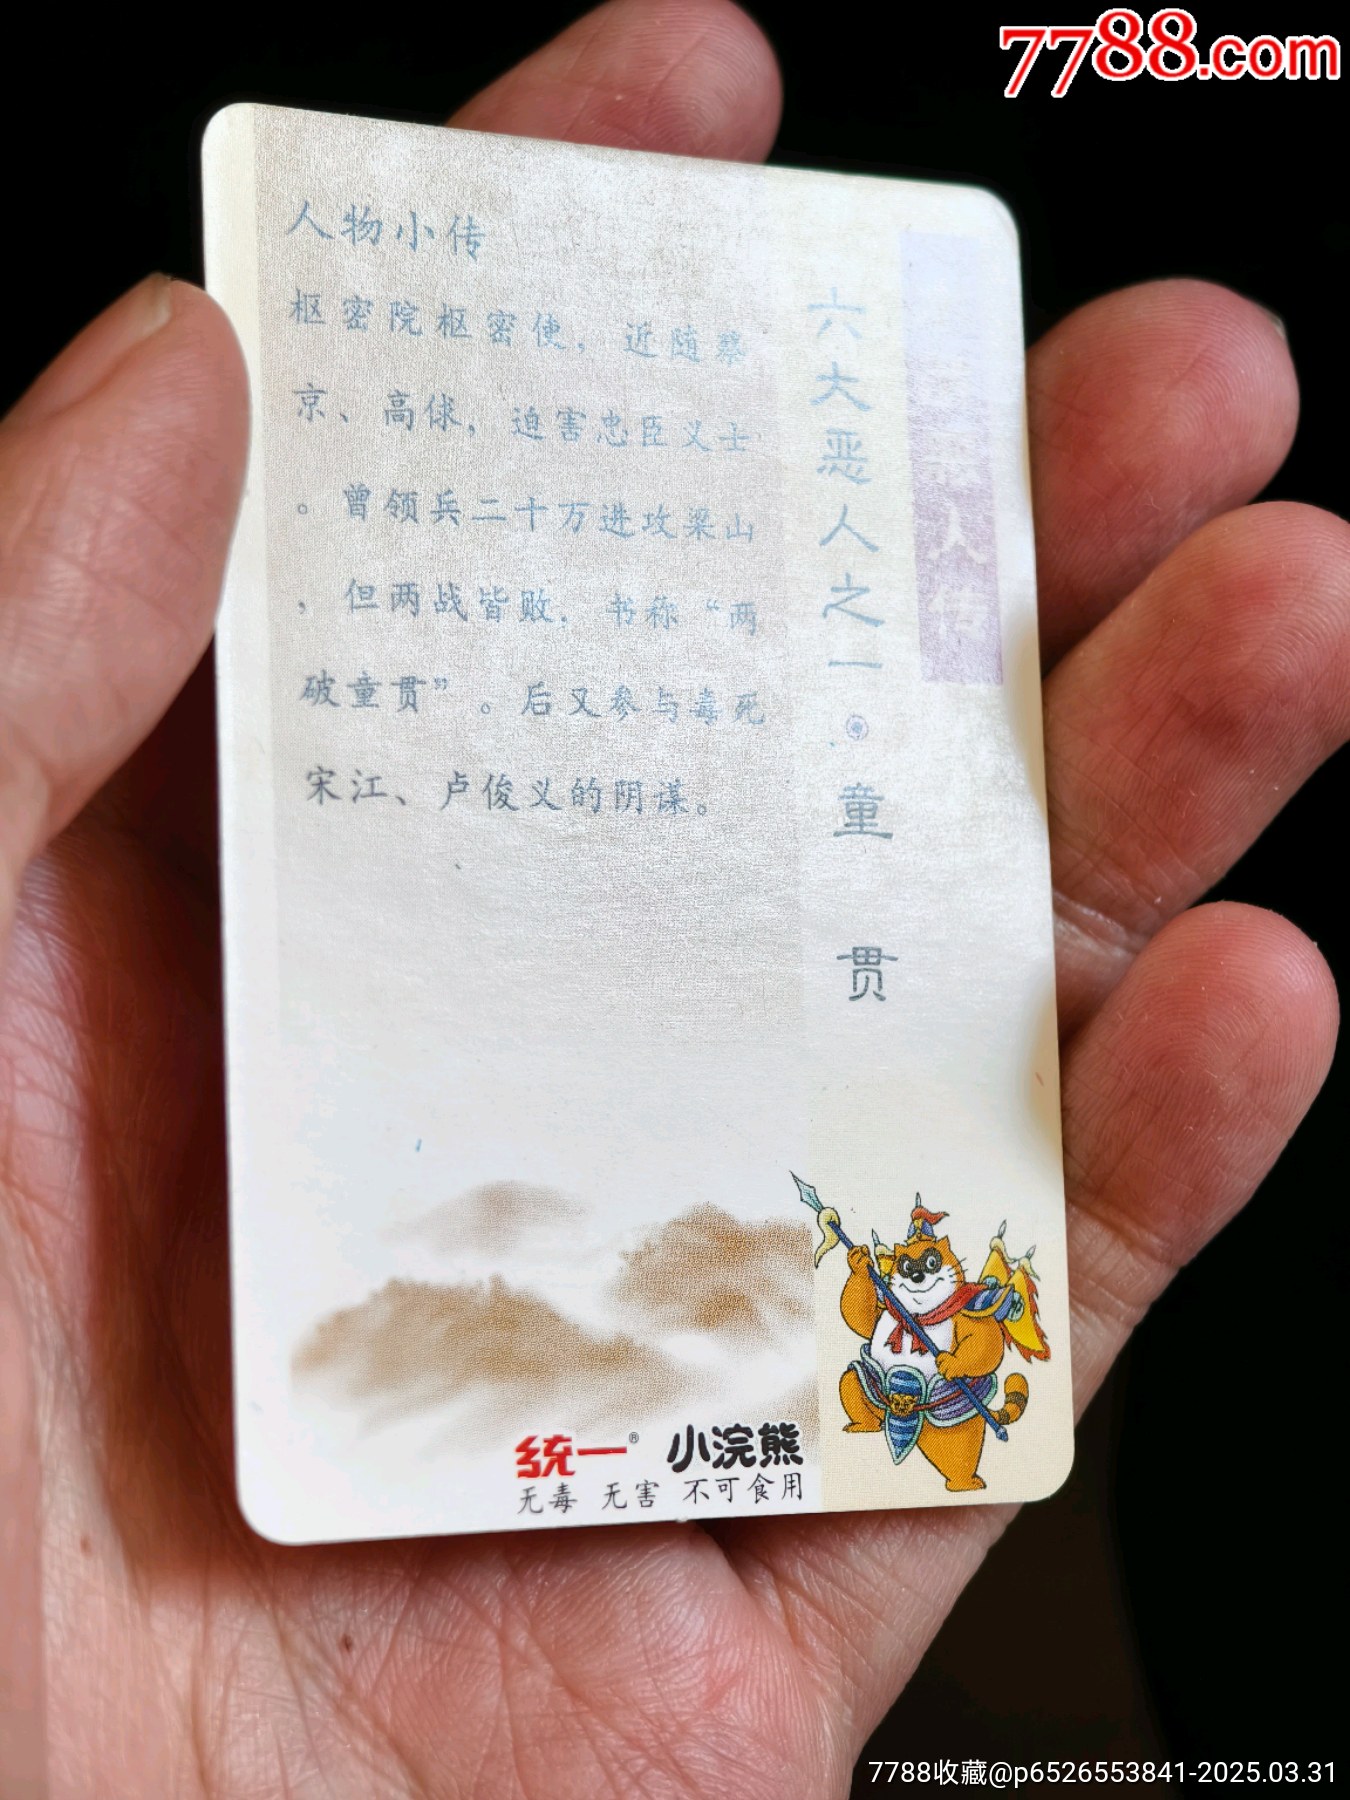 7788.com
人物小传
枢密院枢密使，近随蔡
京、高俅，迫害忠臣义士
。曾领兵二十万进攻梁山
，但两战皆败，书称“两
破童贯”。后又参与毒死
宋江、卢俊义的阴谋。
六大恶人之一。童贯
恶人传
统一® 小浣熊
无毒 无害 不可食用
7788收藏@p6526553841-2025.03.31